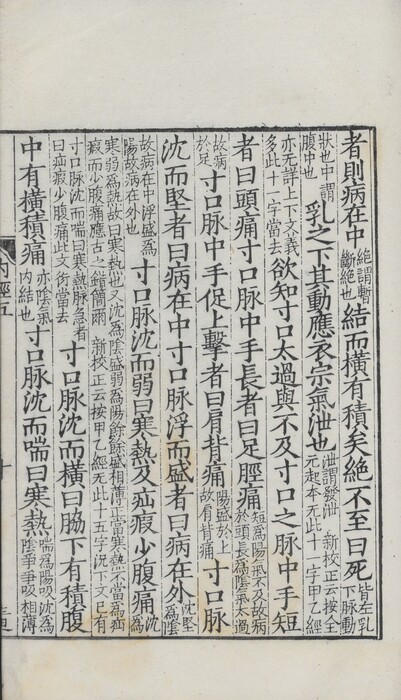 者則病在中絶謂暫斷絶也結而横有積矣絶不至曰死皆左乳下脉動
狀也中謂腹中也乳之下其動應衣宗氣泄也泄謂發泄 新校正云按全元起本无此十一字甲乙經
亦无詳上下文義多此十一字當去欲知寸口太過與不及寸口之脉中手短
者曰頭痛寸口脉中手長者曰足脛痛短爲陽氣不及故病於頭長爲陰氣太過
故病於足寸口脉中手促上擊者曰肩背痛陽盛於上故肩背痛寸口脉
沈而堅者曰病在中寸口脉浮而盛者曰病在外沈堅爲陰
故病在中浮盛爲陽故病在外也寸口脉沈而弱曰寒熱及疝瘕少腹痛沈爲
寒弱爲熱故曰寒熱也又沈爲陰盛弱爲陽餘餘盛相薄正當寒熱不當爲疝瘕而少腹痛應古之錯簡爾 新校正云按甲乙經无此十五字況下文已有
寸口脉沈而喘曰寒熱脉急者曰疝瘕少腹痛此文衍當去寸口脉沈而横曰脇下有積腹
中有横積痛亦陰氣内結也寸口脉沈而喘曰寒熱喘爲陽吸沈爲陰爭爭吸相薄
内經五
十